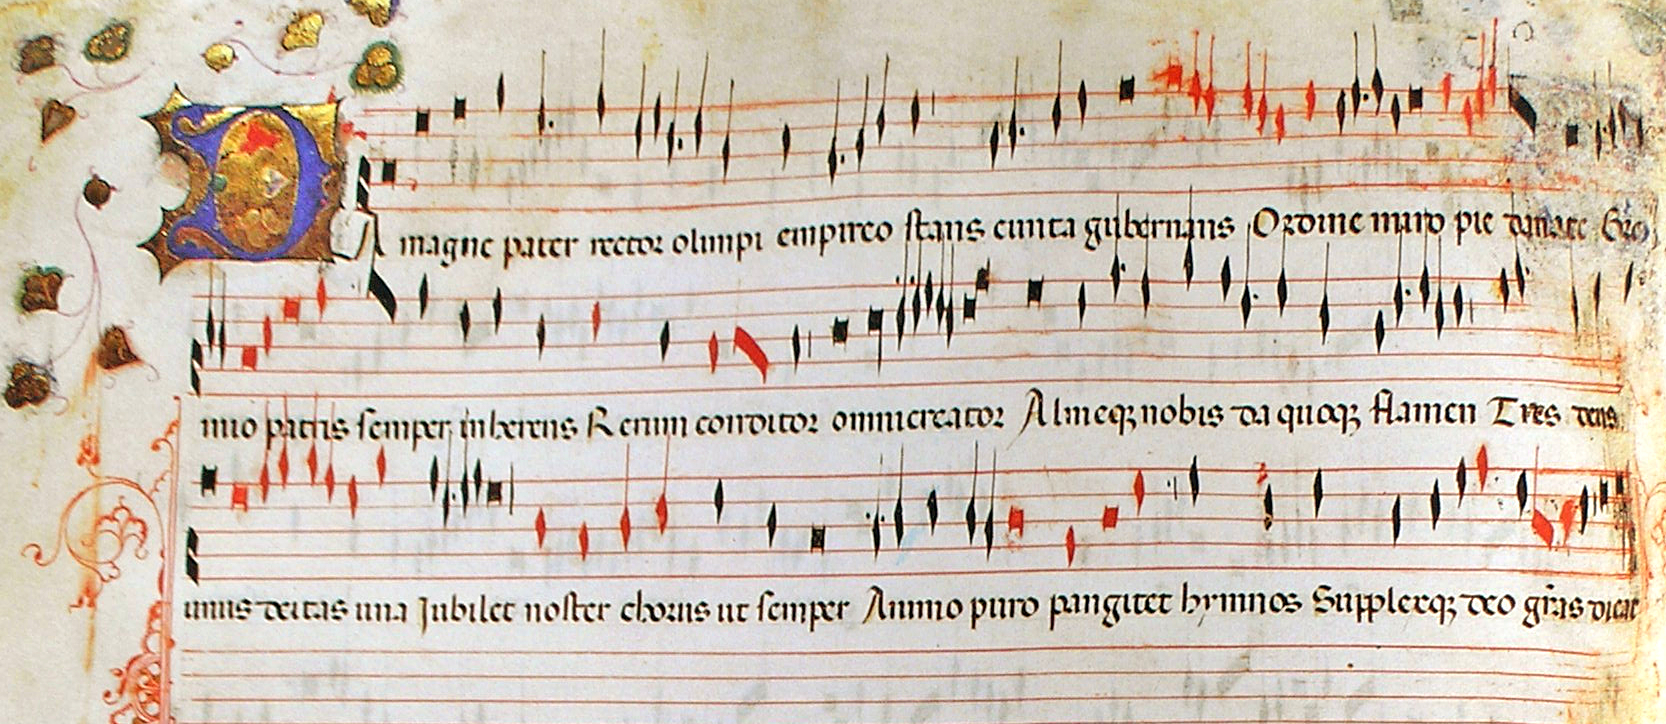 DA magne pater rector olimpi empireo stans cunta gubernans Ordine miro pie
nuo patris semper inherens Rerum conditor omnicreator Almeq; nobis da quoq; flamen Tres deus
unus deitas una Jubilet noster chorus ut semper Animo puro pangitet hymnos Supplexq; deo gr̃as dicat